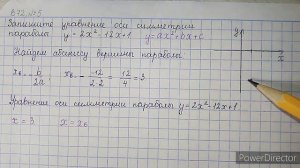 В72.№5
Запишите уравнение оси симметрии
параболы y = 2x² - 12x + 1 y = ax² + bx + c
y
x
Найдем абсциссу вершины параболы
x₈ = - b/2a; x₈ = - -12/2·2 = 12/4 = 3
Уравнение оси симметрии параболы y = 2x² - 12x + 1
x = 3 x = x₈
PowerDirector